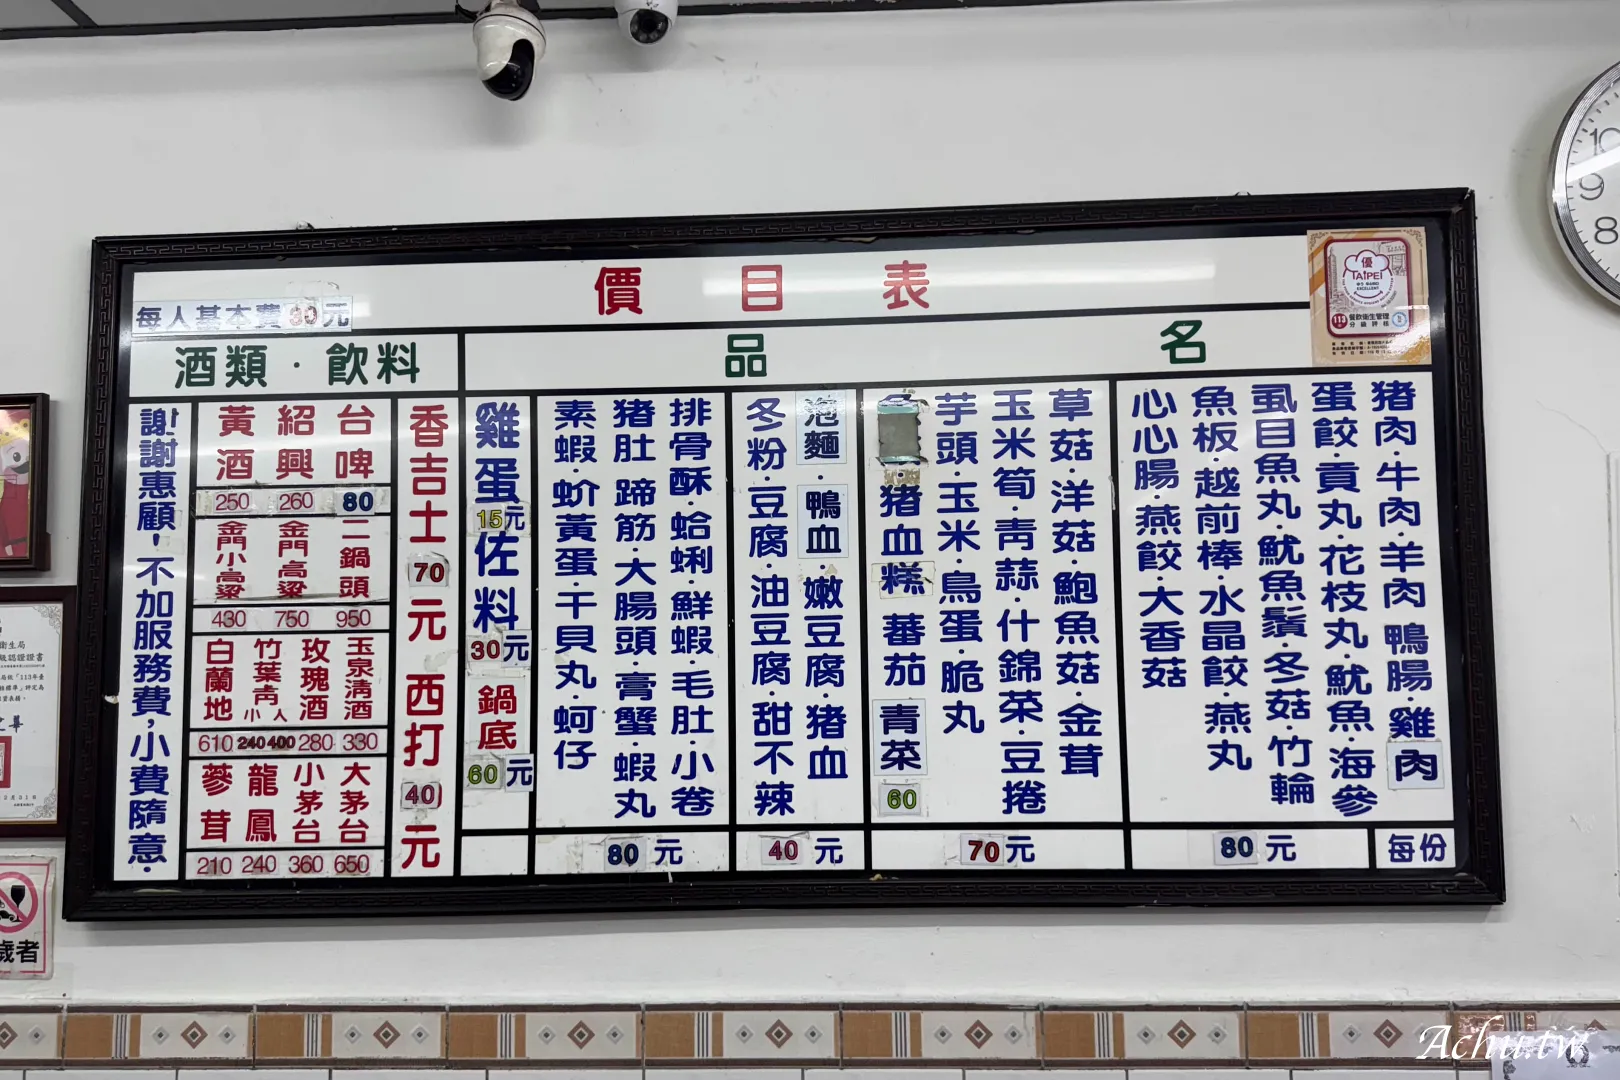 價目表
每人基本費80元
品名
酒類·飲料
豬肉·牛肉·羊肉 鴨腸 雞肉
蛋餃·貢丸·花枝丸·魷魚·海參
虱目魚丸·魷魚鬚·冬菇·竹輪
魚板·越前棒·水晶餃·燕丸
心心腸·燕餃·大香菇
每份
80元
草菇·洋菇·鮑魚菇·金茸
玉米筍·青蒜·什錦菜·豆捲
芋頭·玉米·鳥蛋·脆丸
豬血糕 蕃茄 青菜 60
70元
泡麵·鴨血·嫩豆腐·豬血
冬粉·豆腐·油豆腐·甜不辣
40元
排骨酥·蛤蜊·鮮蝦·毛肚·小卷
豬肚·蹄筋·大腸頭·膏蟹·蝦丸
素蝦·蚧黃蛋·干貝丸·蚵仔
80元
雞蛋15元佐料30元 鍋底60元
香吉士70元 西打40元
台啤 80
紹興 260
黃酒 250
二鍋頭 950
金門高粱 750
金門小高粱 430
玉泉清酒 330
玫瑰酒 280
竹葉青 小 大 240 400
白蘭地 610
大茅台 650
小茅台 360
龍鳳 240
蔘茸 210
謝謝惠顧!不加服務費,小費隨意·
優
TAIPEI
EXCELLENT
113
餐飲衛生管理
分級評核
10
9
8
衛生局
級認證證書
歲者
Achu.tw